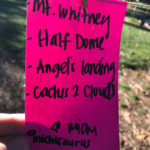 Mt. Whitney
- Half Dome
- Angels landing
- Cactus 2 Clouds